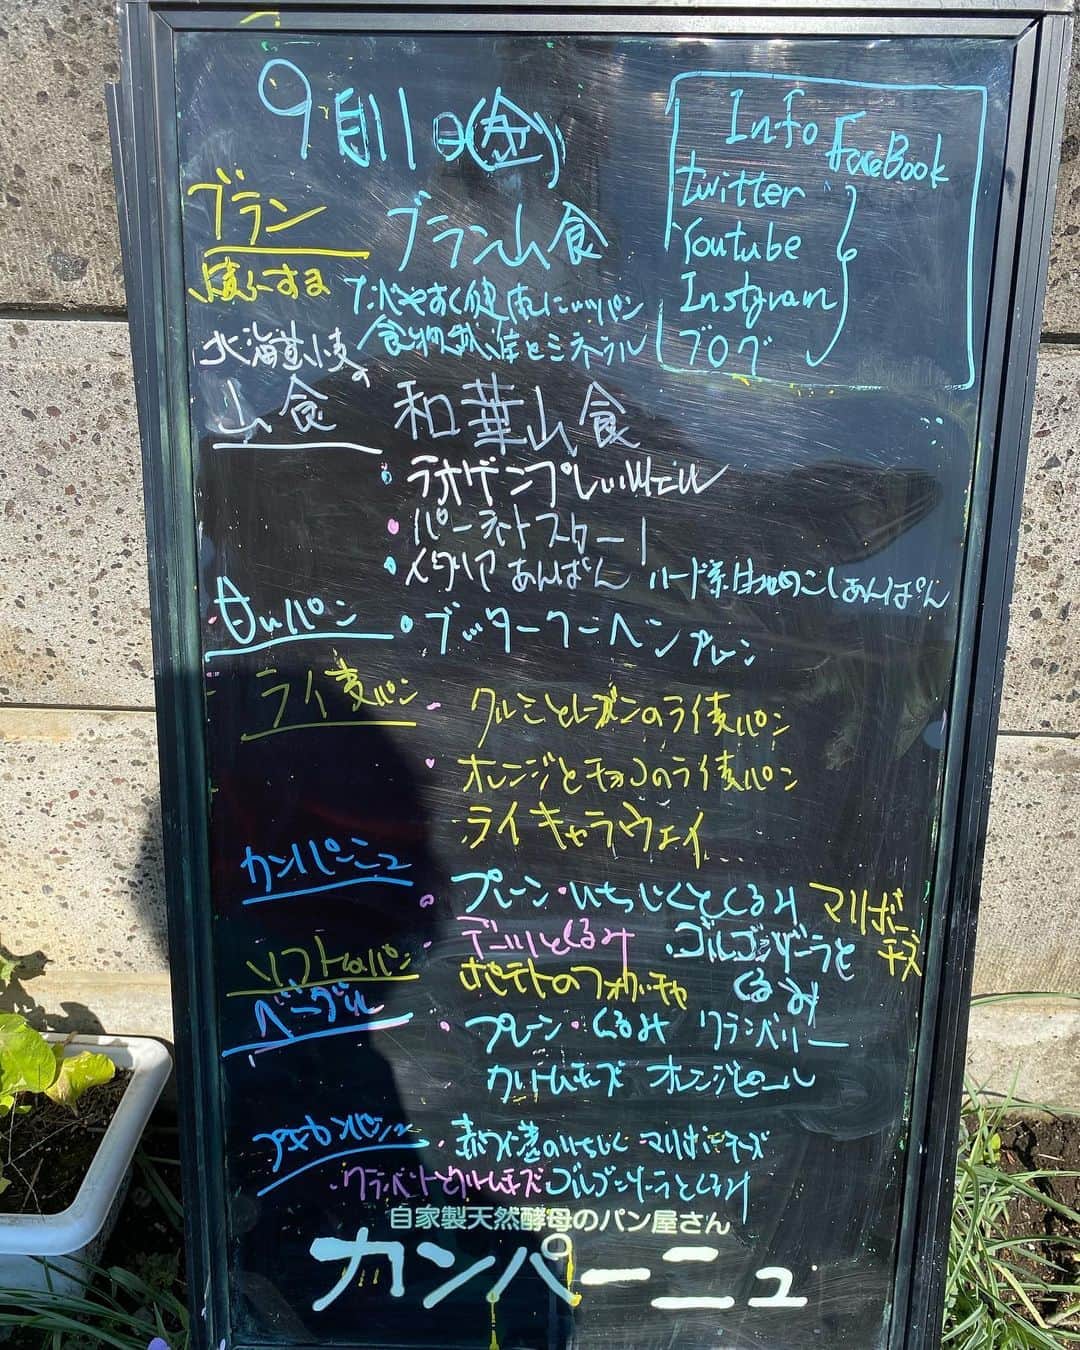 9月11日(金)
Info
FaceBook
twitter
Youtube
Instgram
ブログ
ブラン
ブラン山食
食物繊維とミネラル
北海道小麦の
山食
和華山食
イタリアあんぱん ハード系生地のこしあんぱん
白いパン
ブッタークーヘン プレーン
ライ麦パン
クルミとレーズンのライ麦パン
オレンジとチョコのライ麦パン
ライキャラウェイ
カンパーニュ
プレーン・いちじくとくるみ マリボーチーズ
くるみ ゴルゴンゾーラとくるみ
ソフトなパン
ポテトのフォカッチャ
ベーグル
プレーン・くるみ クランベリー
クリームチーズ オレンジピール
プチカンパーニュ
赤ワイン煮のいちじく マリボーチーズ
クランベリーとクリームチーズ ゴルゴンゾーラとくるみ
自家製天然酵母のパン屋さん
カンパーニュ